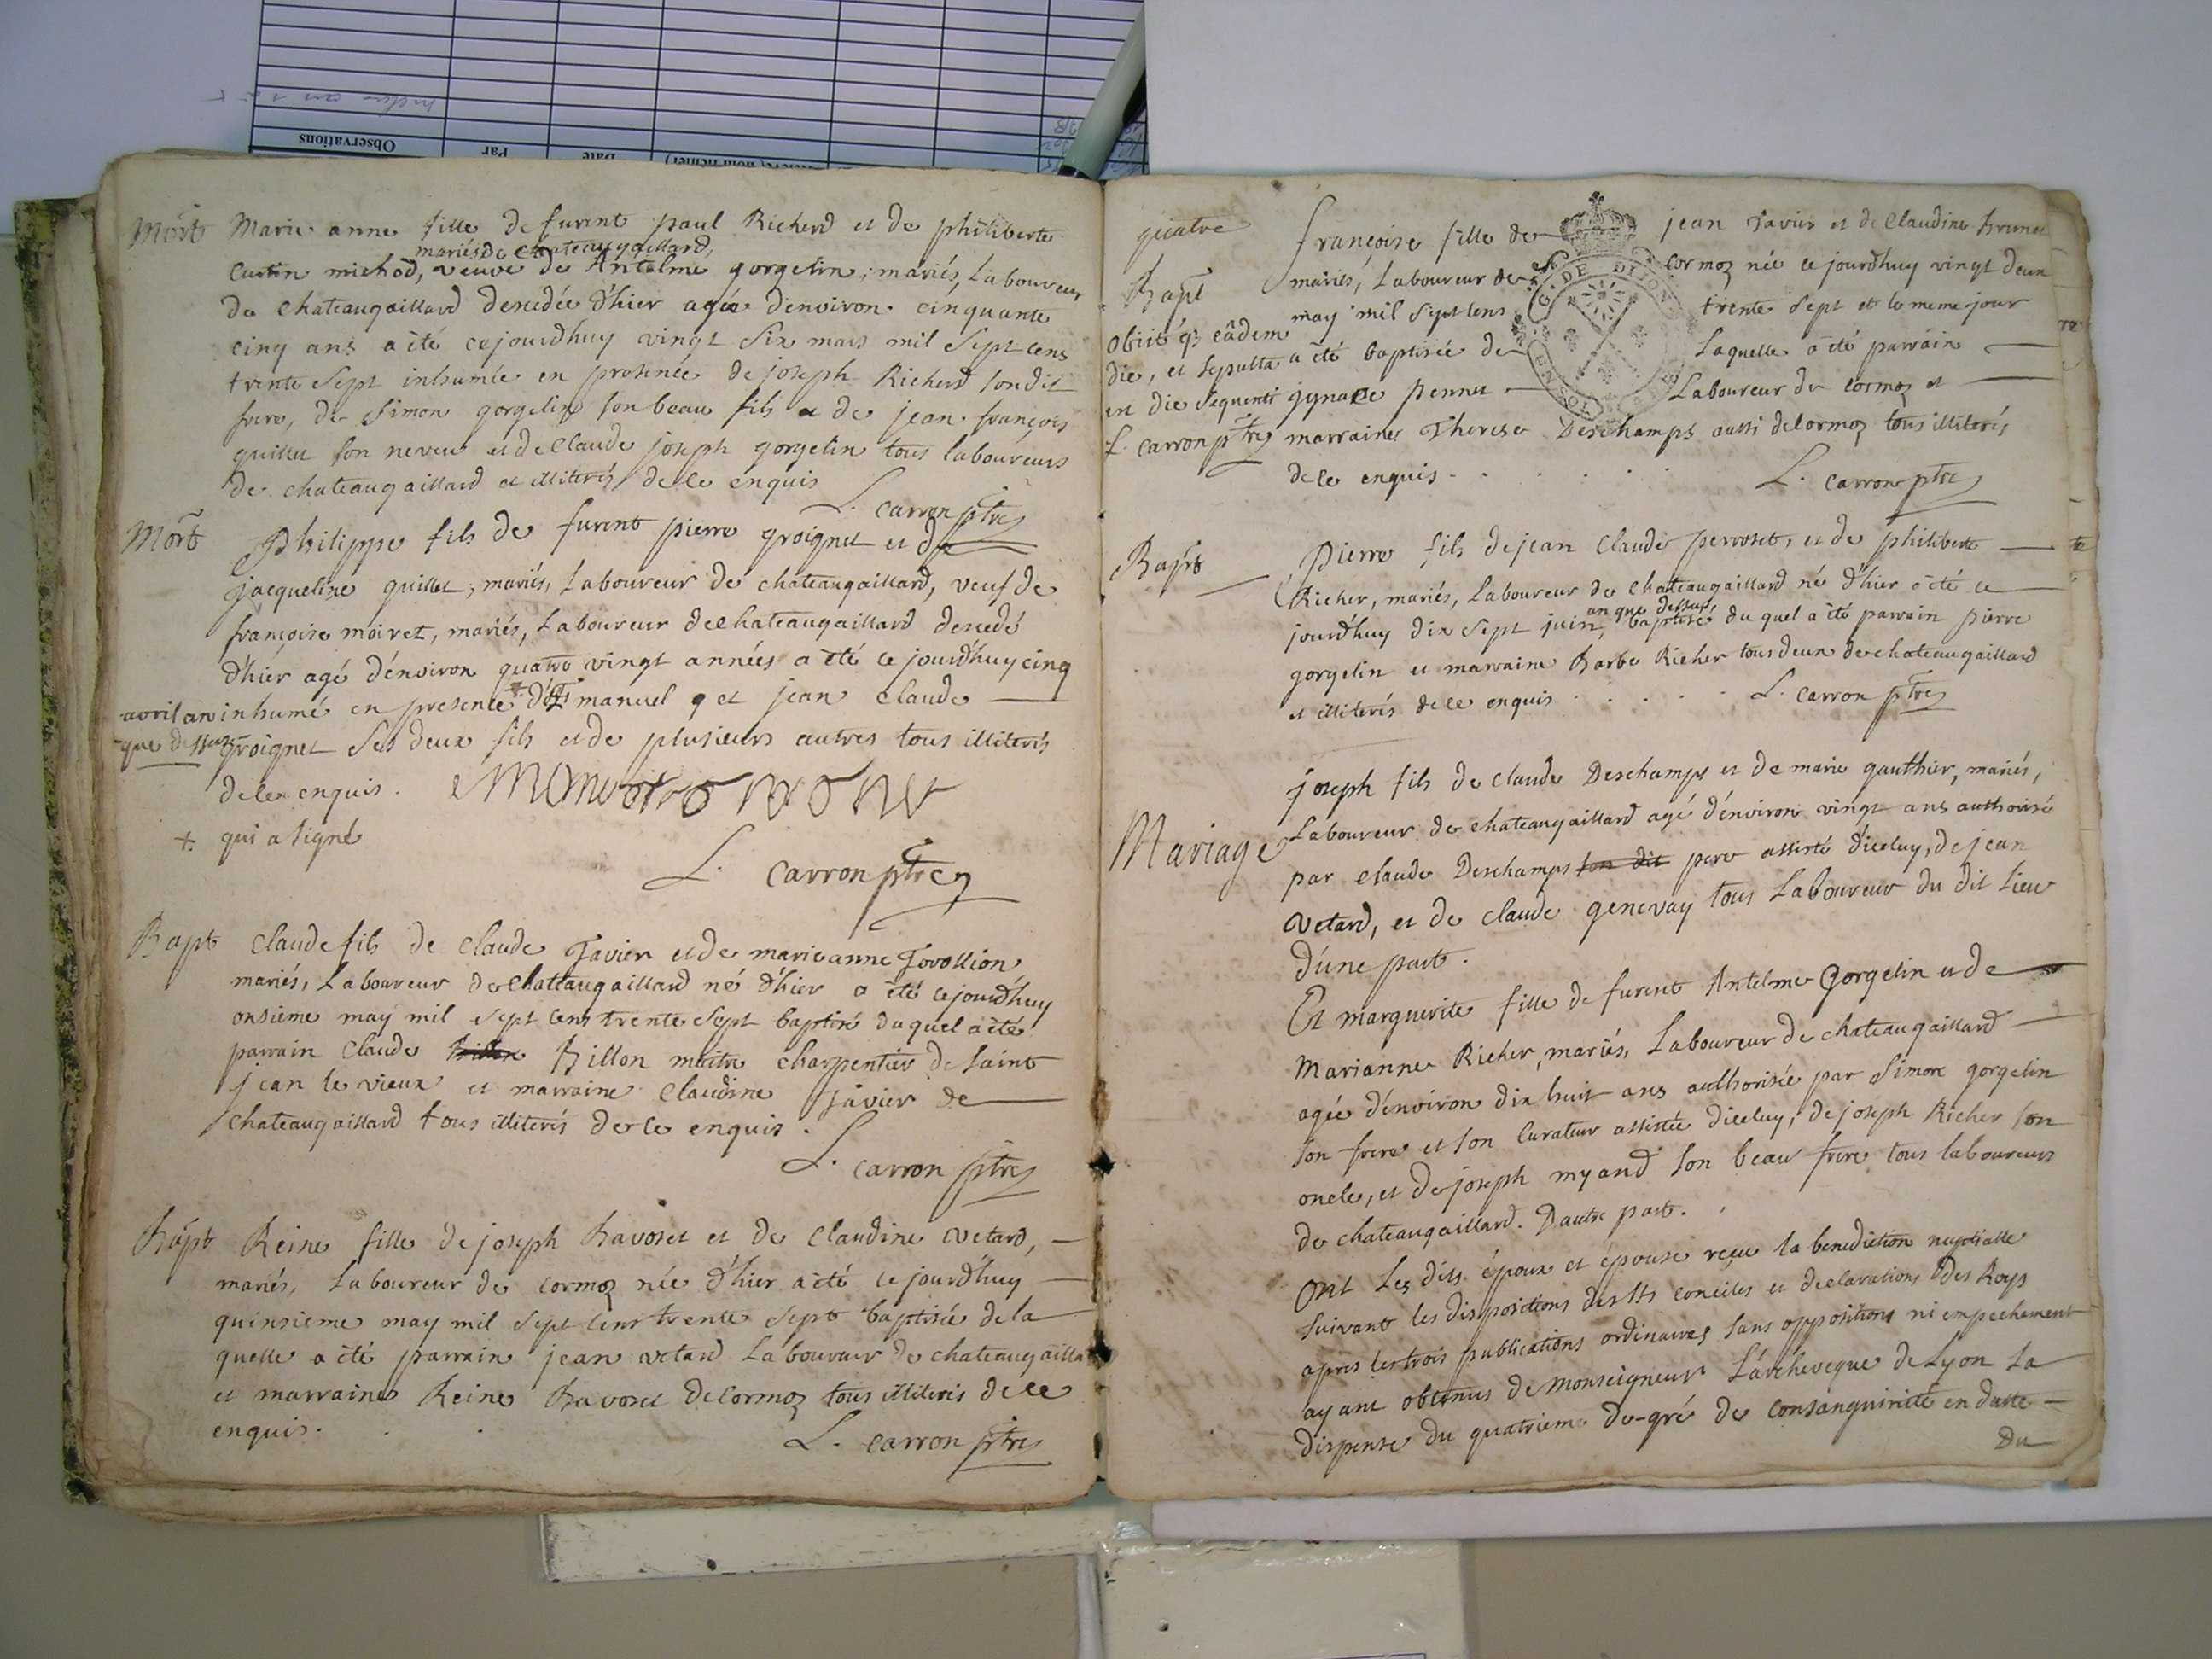 Observations
Par
Date
Mort Marie anne fille de furent paul Richerd et de philiberte
mariés de chateaugaillard,
Curtin michod, veuve de Antelme gorgelin, mariés, Laboureur
de chateaugaillard decedée d'hier agée d'environ cinquante
cinq ans a été cejourdhuy vingt Six mars mil Sept cens
trente Sept inhumée en presence de joseph Richerd Son dit
frere, de Simon gorgelin Son beau fils et de jean françois
quillet Son neveu et de Claude joseph gorgelin tous laboureurs
de chateaugaillard et illiterés de ce enquis
L. carron ptre
Mort Philippe fils de furent pierre groignet et de
jacqueline quillet, mariés, Laboureur de chateaugaillard, veuf de
françoise moiret, mariés, Laboureur de chateaugaillard decedé
d'hier agé d'environ quatre vingt années a été ce jourd'huy cinq
avril an inhumé en presence d'Emanuel + et jean Claude
que dessus groignet Ses deux fils et de plusieurs autres tous illiterés
de ce enquis.
+. qui a signé
L. carron ptre
Bapt Claude fils de Claude Javier et de marieanne
mariés, Laboureur de chateaugaillard né d'hier a été cejourd'huy
onsieme may mil Sept cens trente Sept baptisé du quel a été
parrain Claude Billon maitre charpentier de Saint
jean le vieux et marraine Claudine javier de
chateaugaillard tous illiterés de ce enquis.
L. carron ptre
Bapt Reine fille de joseph Ravoret et de Claudine vetard,
mariés, Laboureur de cormoz née d'hier a été ce jourd'huy
quinsieme may mil Sept cens trente Sept baptisée de la
quelle a été parrain jean vetard Laboureur de chateaugailla
et marraine Reine Ravoret de Cormoz tous illiterés de ce
enquis.
L. carron ptre
quatre
françoise fille de jean Javier et de Claudine brunet
Bapt mariés, Laboureur de Cormoz née ce jourdhuy vingt deux
may mil Sept Cens trente Sept et le meme jour
obiit q3 eâdem a été baptisée de Laquelle a été parrain
die, et Sepulta ignace Pennet Laboureur de cormoz et
in die Sequenti marraine Therese Deschamps aussi de Cormoz tous illiterés
L. carron ptre de ce enquis
L. carron ptre
G. DE DIJON
Bapt Pierre fils de jean Claude perroset, et de philiberte
Richer, mariés, Laboureur de Chateaugaillard né d'hier a été ce
an que dessus,
jourd'huy dix Sept juin, baptisé du quel a été parrain pierre
gorgelin et marraine Barbe Richer tous deux de chateaugaillard
et illiterés de ce enquis
L. carron ptre
joseph fils de Claude Deschamps et de marie gauthier, mariés,
Mariage Laboureur de chateaugaillard agé d'environ vingt ans authorisé
par Claude Deschamps son dit pere assisté d'iceluy, de jean
vetard, et de Claude genevay tous Laboureur du dit Lieu
d'une part.
Et marguerite fille de furent Antelme Gorgelin et de
Marianne Richer, mariés, Laboureur de chateaugaillard
agée d'environ dix huit ans authorisée par Simon gorgelin
Son frere et Son Curateur assistée diceluy, de joseph Richer Son
oncle, et de joseph myand Son beau frere tous laboureurs
de chateaugaillard. D'autre part.
Ont Les dits époux et épouse reçu la benediction nuptialle
Suivant les dispositions des Sts conciles et declarations des Roys
apres les trois publications ordinaires Sans oppositions ni empechement
ayant obtenus de monseigneur L'archeveque de Lyon La
dispense du quatrieme de-gré de consanguinité en datte
Du